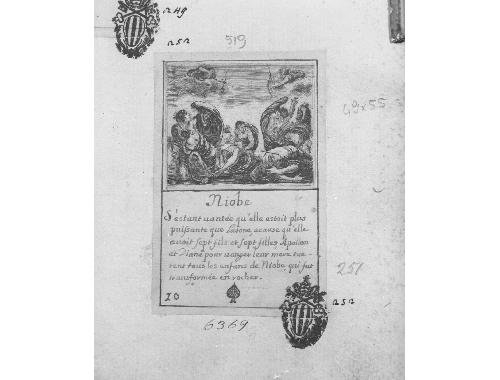 249
252
519
49x55
Niobe
S'estant uantée qu'elle estoit plus
puissante que Latone acause qu'elle
auoit sept fils et sept filles Apollon
et Diane pour uanger leur mere tue-
rent tous les enfans de Niobe qui fut
transformée en rocher.
251
10
252
6369